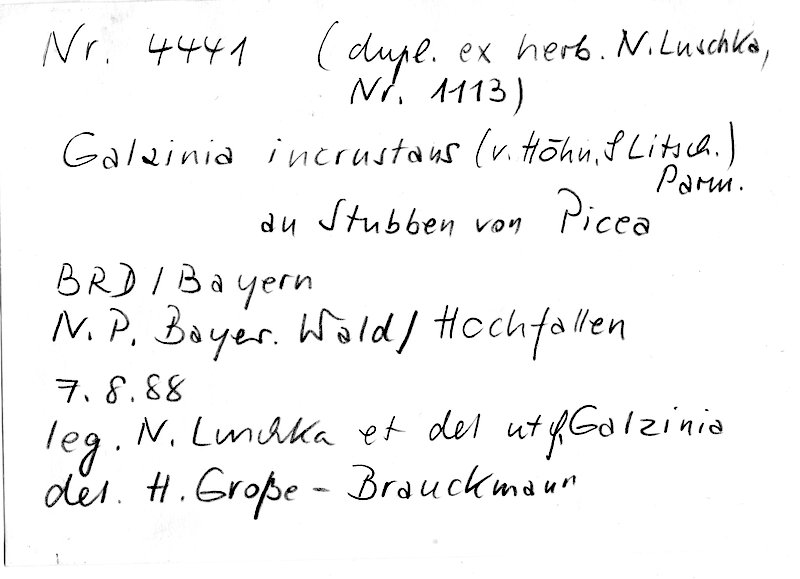 Nr. 4441 (dupl. ex herb. N. Luschka,
Nr. 1113)
Galzinia incrustans (v. Höhn. & Litsch.)
Parm.
an Stubben von Picea
BRD / Bayern
N. P. Bayer. Wald / Hochfallen
7. 8. 88
leg. N. Luschka et det Galzinia
det. H. Große - Brauckmann